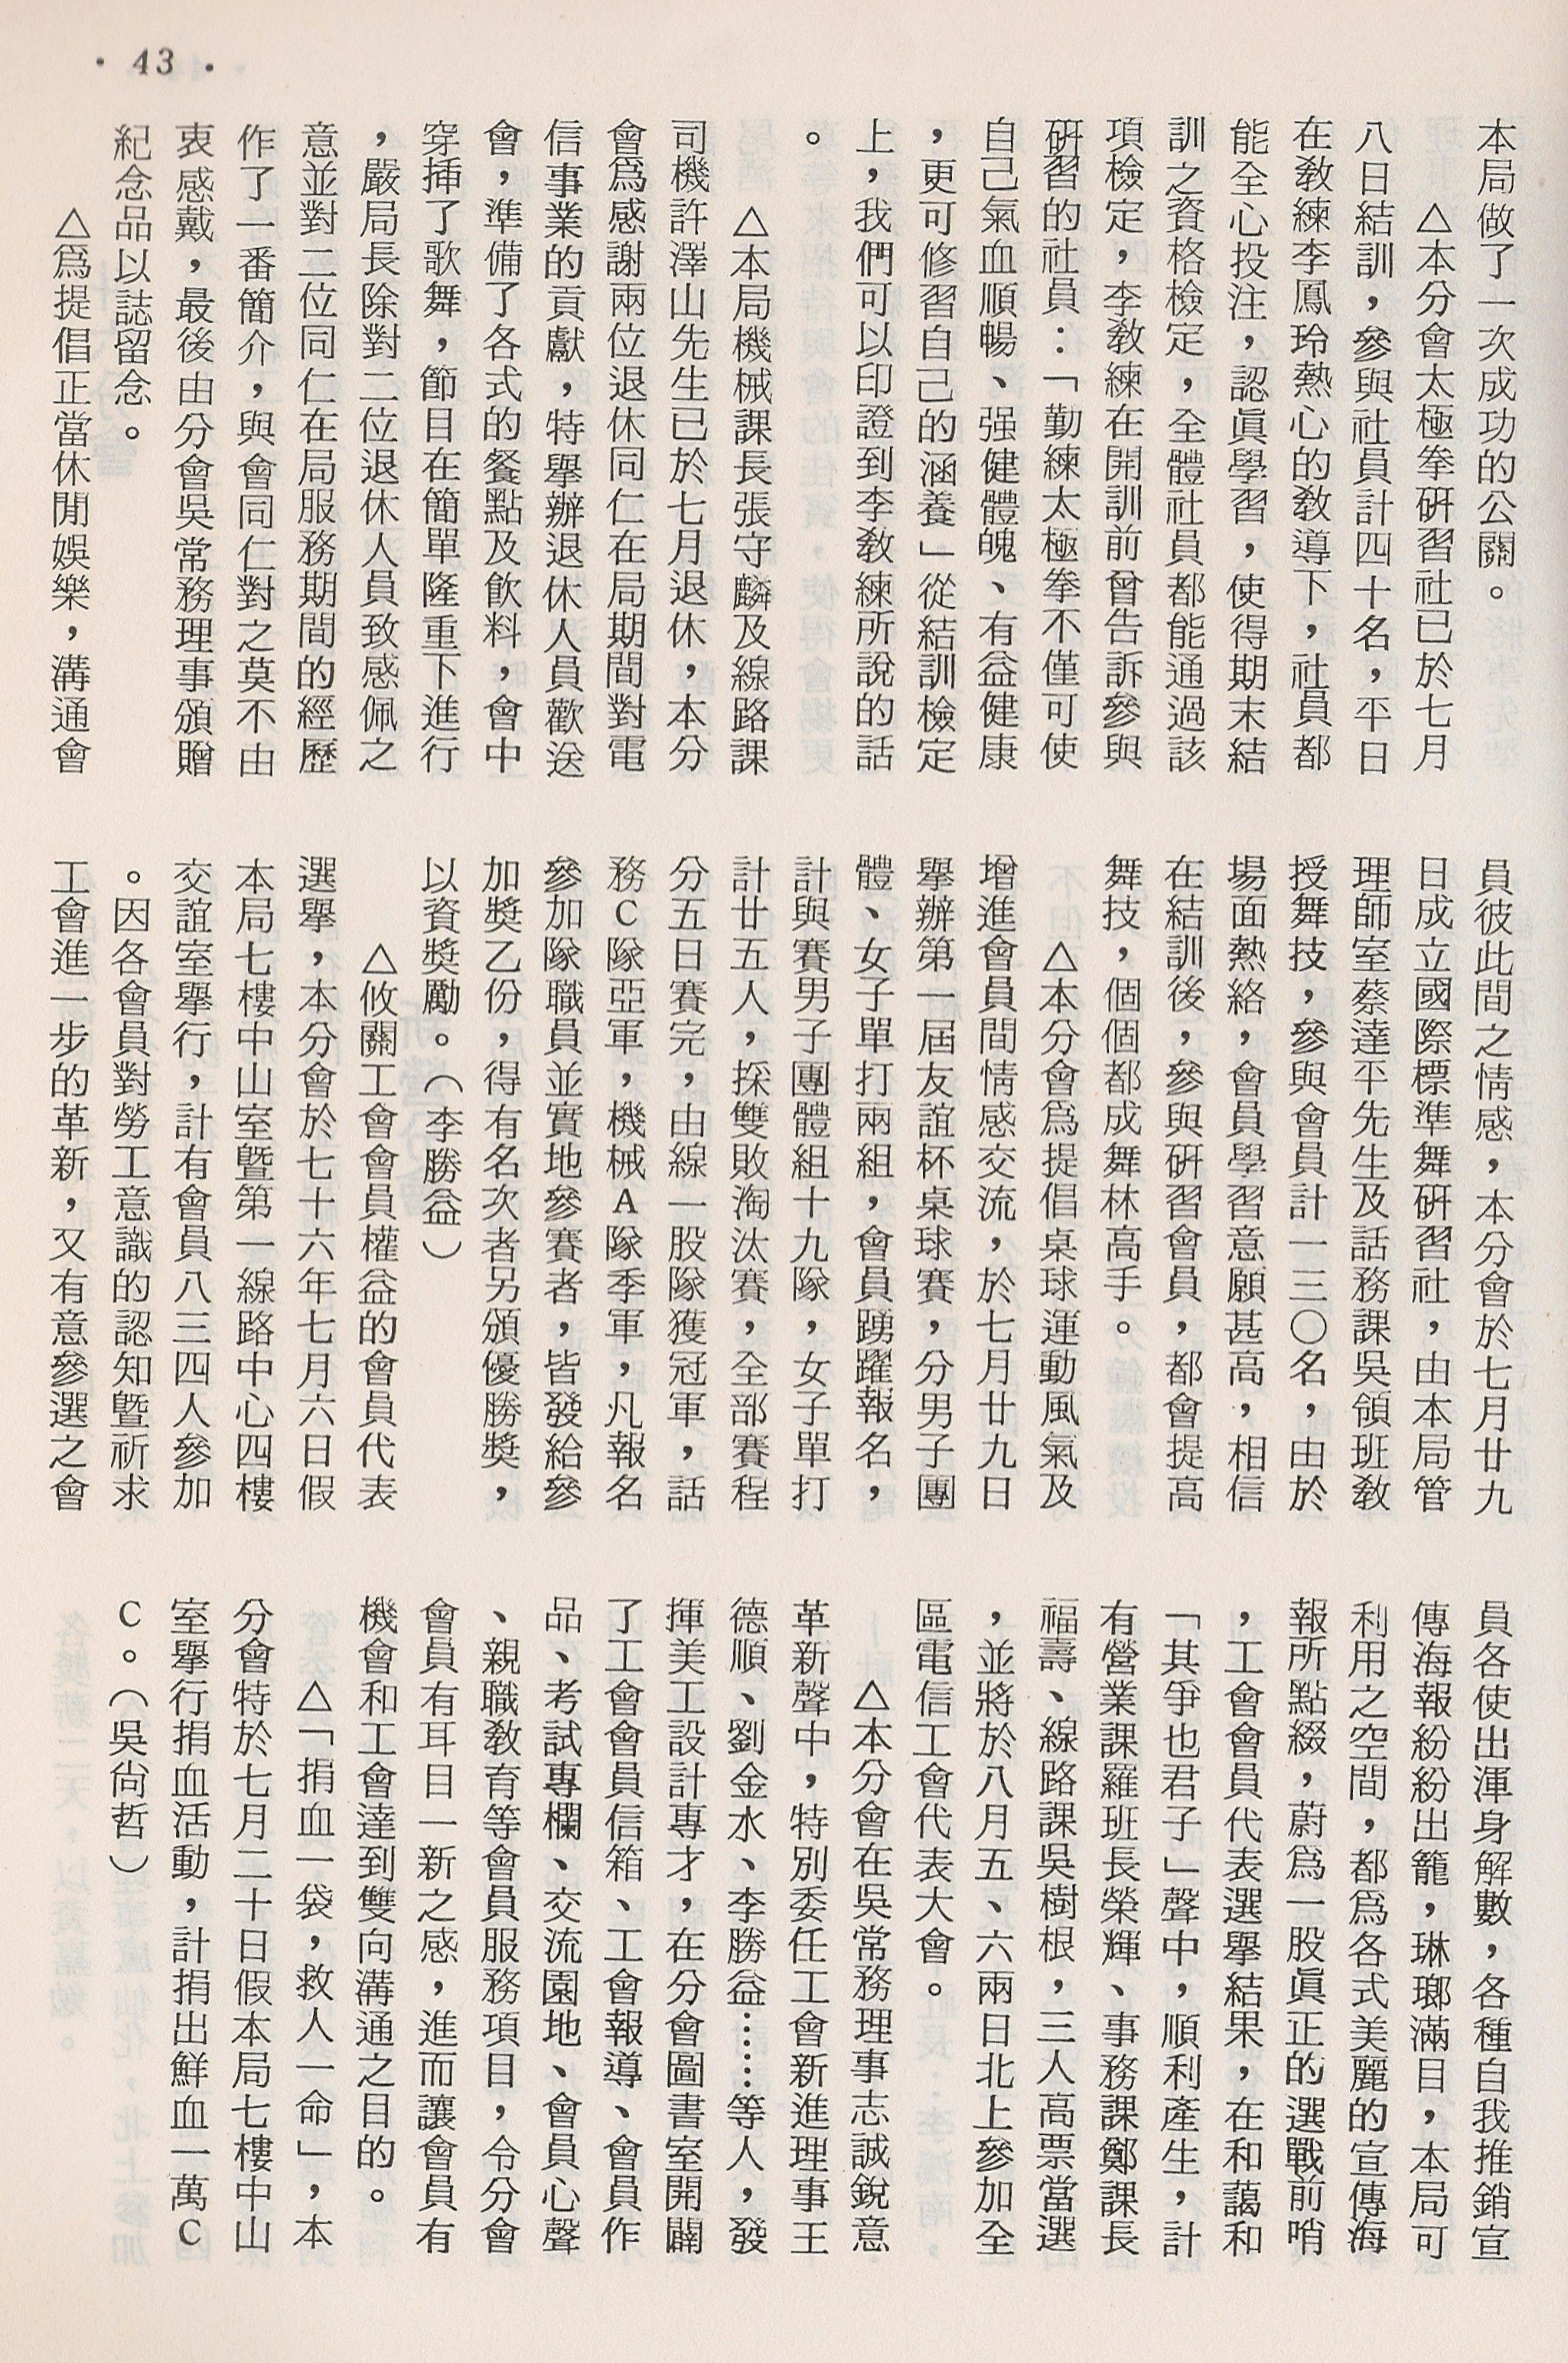 • 43 •
本局做了一次成功的公關。
△本分會太極拳硏習社已於七月
八日結訓，參與社員計四十名，平日
在教練李鳳玲熱心的教導下，社員都
能全心投注，認眞學習，使得期末結
訓之資格檢定，全體社員都能通過該
項檢定，李教練在開訓前曾告訴參與
硏習的社員：「勤練太極拳不僅可使
自己氣血順暢、强健體魄、有益健康
，更可修習自己的涵養」從結訓檢定
上，我們可以印證到李教練所說的話
。
△本局機械課長張守麟及線路課
司機許澤山先生已於七月退休，本分
會爲感謝兩位退休同仁在局期間對電
信事業的貢獻，特舉辦退休人員歡送
會，準備了各式的餐點及飲料，會中
穿揷了歌舞，節目在簡單隆重下進行
，嚴局長除對二位退休人員致感佩之
意並對二位同仁在局服務期間的經歷
作了一番簡介，與會同仁對之莫不由
衷感戴，最後由分會吳常務理事頒贈
紀念品以誌留念。
△爲提倡正當休閒娛樂，溝通會
員彼此間之情感，本分會於七月廿九
日成立國際標準舞硏習社，由本局管
理師室蔡達平先生及話務課吳領班教
授舞技，參與會員計一三〇名，由於
場面熱絡，會員學習意願甚高，相信
在結訓後，參與硏習會員，都會提高
舞技，個個都成舞林高手。
△本分會爲提倡桌球運動風氣及
增進會員間情感交流，於七月廿九日
舉辦第一屆友誼杯桌球賽，分男子團
體、女子單打兩組，會員踴躍報名，
計與賽男子團體組十九隊，女子單打
計廿五人，採雙敗淘汰賽，全部賽程
分五日賽完，由線一股隊獲冠軍，話
務C隊亞軍，機械A隊季軍，凡報名
參加隊職員並實地參賽者，皆發給參
加獎乙份，得有名次者另頒優勝獎，
以資獎勵。（李勝益）
△攸關工會會員權益的會員代表
選舉，本分會於七十六年七月六日假
本局七樓中山室暨第一線路中心四樓
交誼室舉行，計有會員八三四人參加
。因各會員對勞工意識的認知暨祈求
工會進一步的革新，又有意參選之會
員各使出渾身解數，各種自我推銷宣
傳海報紛紛出籠，琳瑯滿目，本局可
利用之空間，都爲各式美麗的宣傳海
報所點綴，蔚爲一股眞正的選戰前哨
，工會會員代表選舉結果，在和藹和
「其爭也君子」聲中，順利產生，計
有營業課羅班長榮輝、事務課鄭課長
福壽、線路課吳樹根，三人高票當選
，並將於八月五、六兩日北上參加全
區電信工會代表大會。
△本分會在吳常務理事志誠銳意
革新聲中，特別委任工會新進理事王
德順、劉金水、李勝益……等人，發
揮美工設計專才，在分會圖書室開闢
了工會會員信箱、工會報導、會員作
品、考試專欄、交流園地、會員心聲
、親職教育等會員服務項目，令分會
會員有耳目一新之感，進而讓會員有
機會和工會達到雙向溝通之目的。
△「捐血一袋，救人一命」，本
分會特於七月二十日假本局七樓中山
室舉行捐血活動，計捐出鮮血一萬C
C。（吳尙哲）